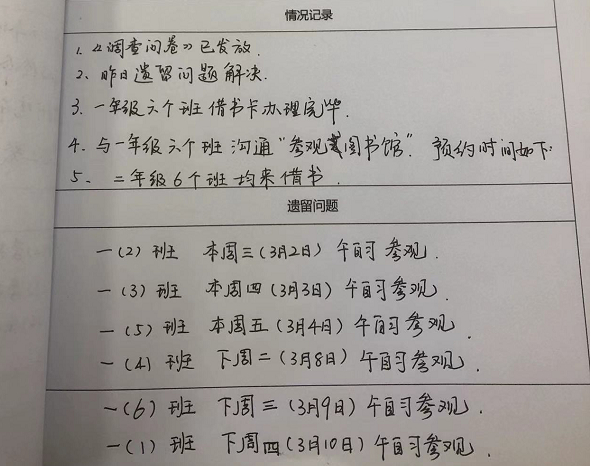 情况记录
1.《调查问卷》已发放.
2、昨日遗留问题解决.
3.一年级六个班借书卡办理完毕.
4.与一年级六个班沟通"参观图书馆".预约时间如下:
5、二年级6个班均来借书.
遗留问题
一(2)班 本周三(3月2日)午自习参观.
一(3)班 本周四(3月3日)午自习参观.
一(5)班 本周五(3月4日)午自习参观.
一(4)班 下周二(3月8日)午自习参观.
一(6)班 下周三(3月9日)午自习参观.
一(1)班 下周四(3月10日)午自习参观.